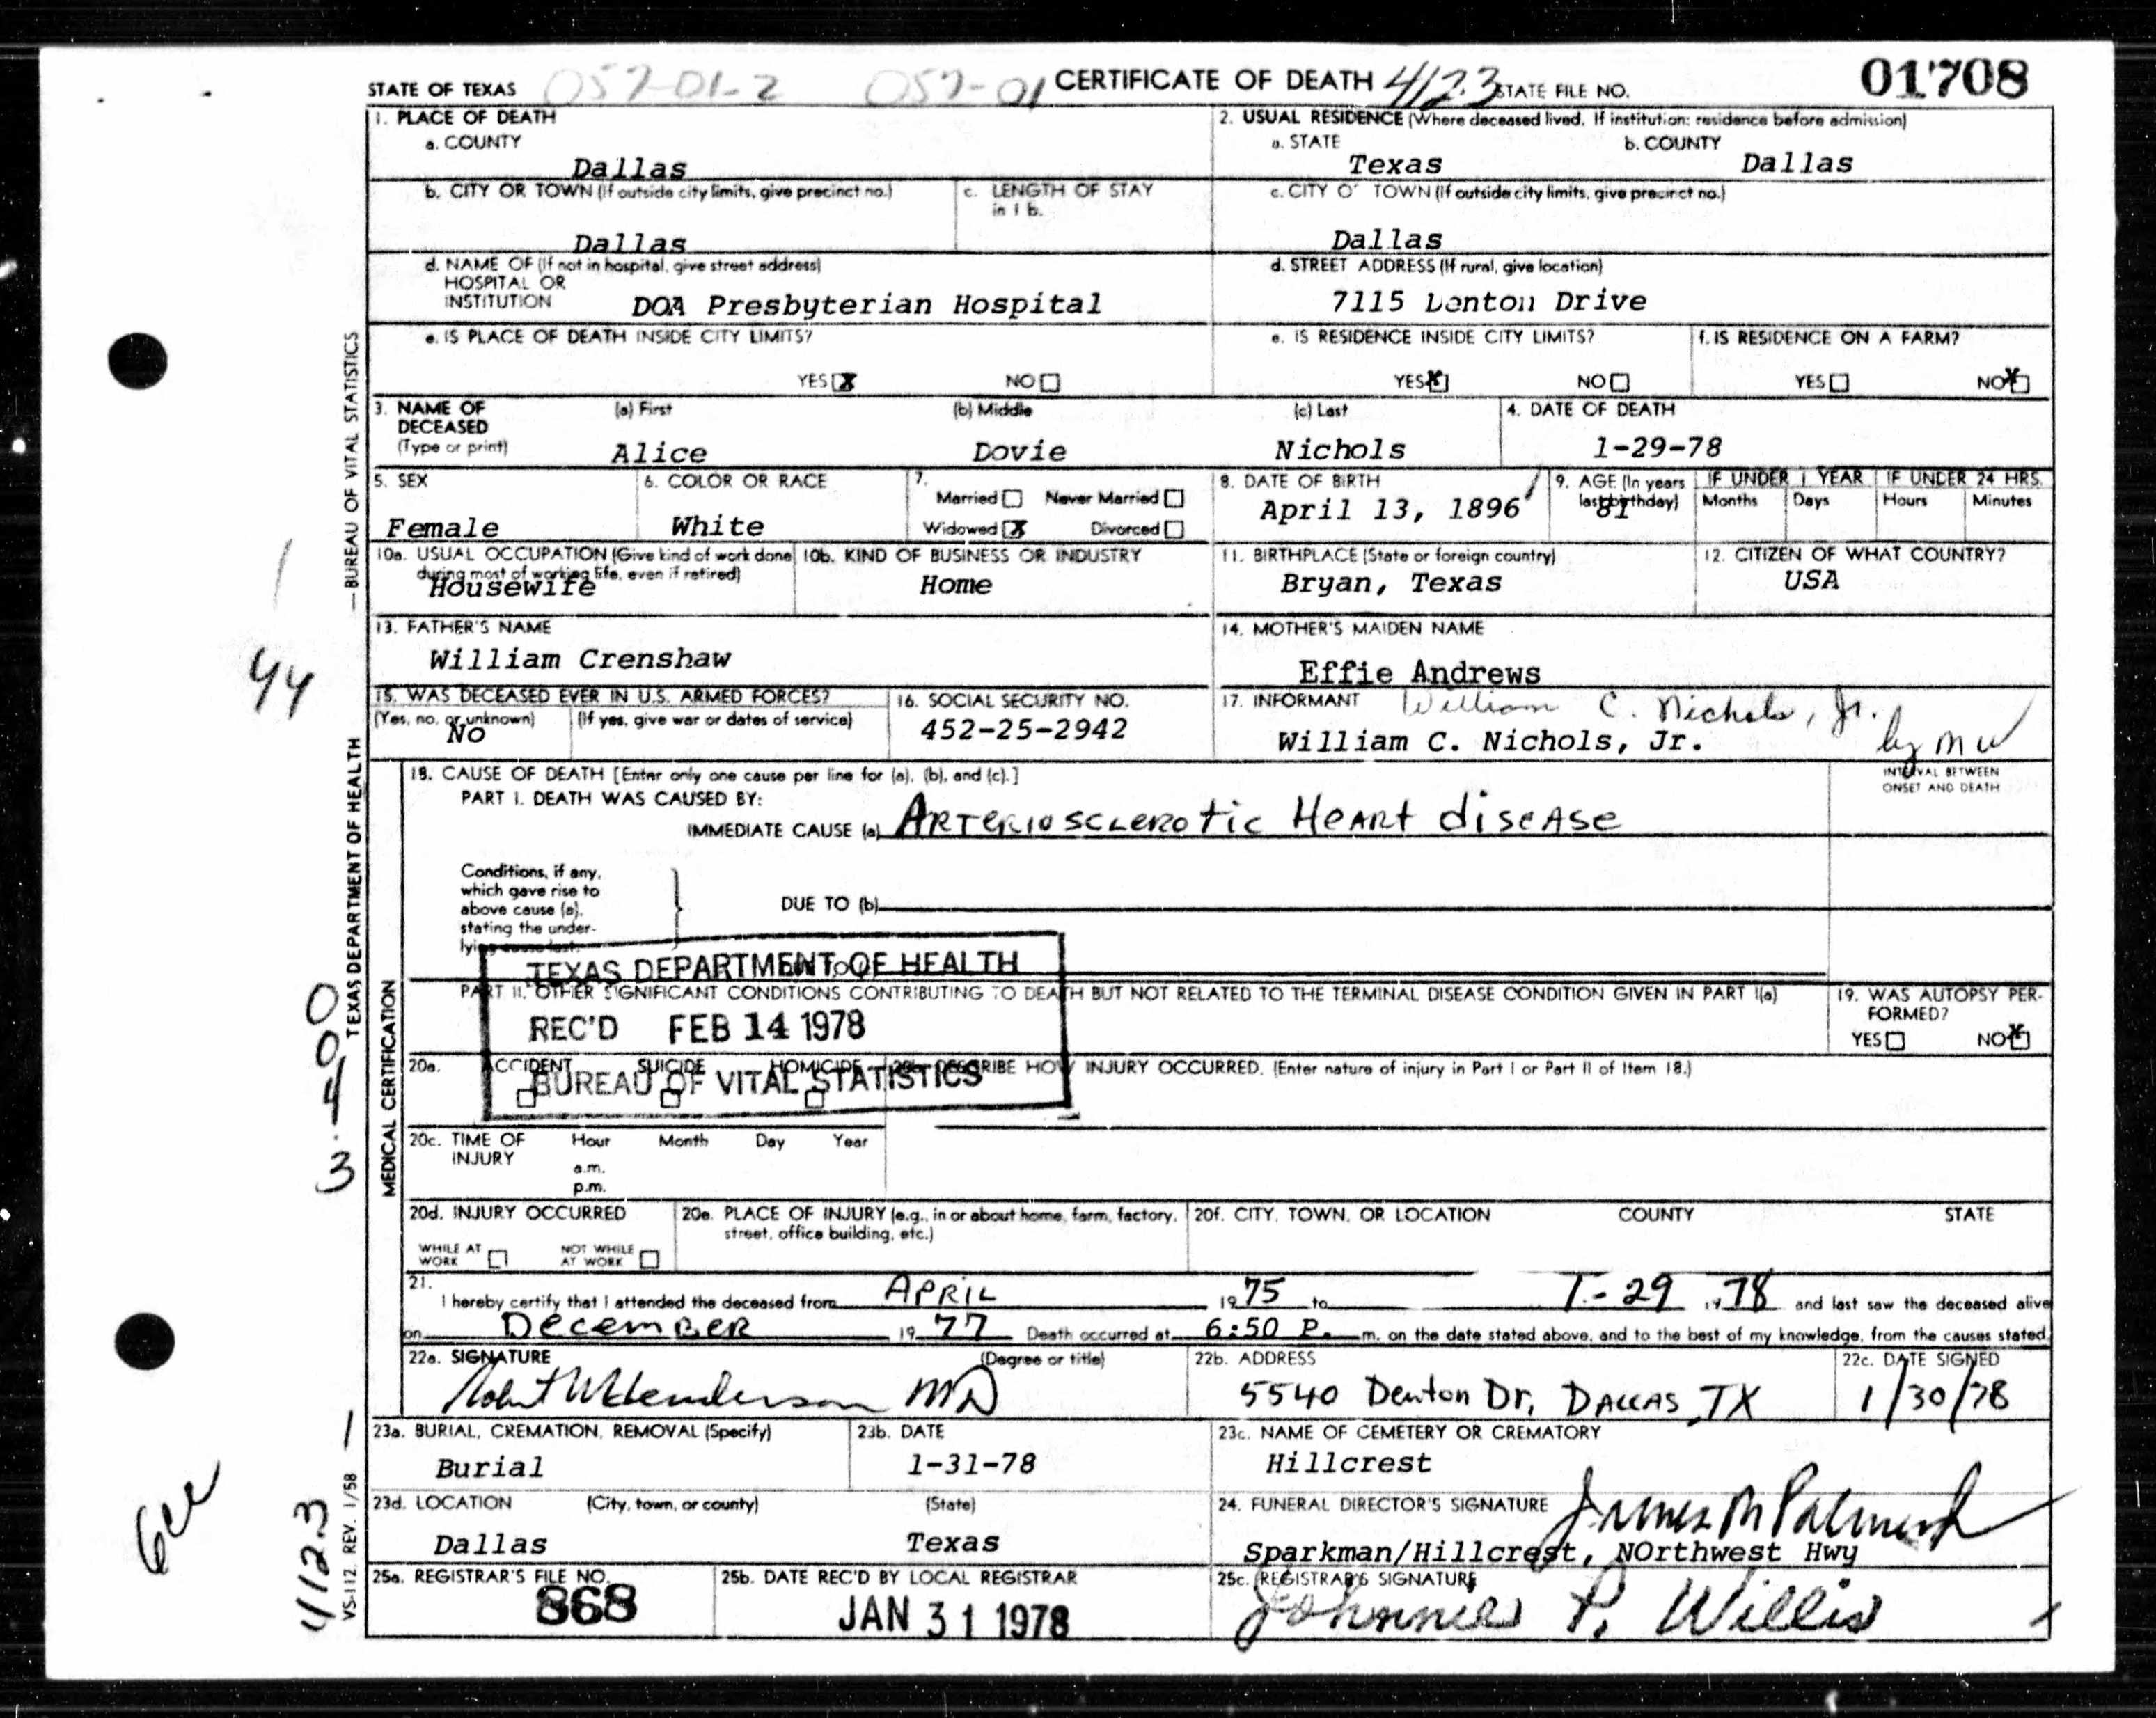 STATE OF TEXAS 057-01-2 057-01 CERTIFICATE OF DEATH 4123 STATE FILE NO. 01708
1. PLACE OF DEATH
a. COUNTY
Dallas
2. USUAL RESIDENCE (Where deceased lived. If institution: residence before admission)
a. STATE b. COUNTY
Texas Dallas
b. CITY OR TOWN (If outside city limits, give precinct no.) c. LENGTH OF STAY
in 1 b.
Dallas
c. CITY O' TOWN (If outside city limits, give precinct no.)
Dallas
d. NAME OF (If not in hospital, give street address)
HOSPITAL OR
INSTITUTION DOA Presbyterian Hospital
d. STREET ADDRESS (If rural, give location)
7115 Denton Drive
e. IS PLACE OF DEATH INSIDE CITY LIMITS?
YES X NO
e. IS RESIDENCE INSIDE CITY LIMITS? f. IS RESIDENCE ON A FARM?
YES X NO YES NO X
3. NAME OF (a) First (b) Middle (c) Last 4. DATE OF DEATH
DECEASED
(Type or print) Alice Dovie Nichols 1-29-78
5. SEX 6. COLOR OR RACE 7. 8. DATE OF BIRTH 9. AGE (In years IF UNDER 1 YEAR IF UNDER 24 HRS.
Married Never Married last birthday) Months Days Hours Minutes
Female White Widowed X Divorced April 13, 1896 81
10a. USUAL OCCUPATION (Give kind of work done 10b. KIND OF BUSINESS OR INDUSTRY 11. BIRTHPLACE (State or foreign country) 12. CITIZEN OF WHAT COUNTRY?
during most of working life, even if retired)
Housewife Home Bryan, Texas USA
13. FATHER'S NAME 14. MOTHER'S MAIDEN NAME
William Crenshaw Effie Andrews
15. WAS DECEASED EVER IN U.S. ARMED FORCES? 16. SOCIAL SECURITY NO. 17. INFORMANT William C. Nichols, Jr.
(Yes, no, or unknown) (If yes, give war or dates of service)
No 452-25-2942 William C. Nichols, Jr. by mw
18. CAUSE OF DEATH [Enter only one cause per line for (a), (b), and (c).] INTERVAL BETWEEN
ONSET AND DEATH
PART I. DEATH WAS CAUSED BY:
IMMEDIATE CAUSE (a) ARTERIOSCLEROTIC HEART disEASE
Conditions, if any,
which gave rise to
above cause (a),
stating the under-
lying cause last.
DUE TO (b)
TEXAS DEPARTMENT OF HEALTH
REC'D FEB 14 1978
BUREAU OF VITAL STATISTICS
PART II. OTHER SIGNIFICANT CONDITIONS CONTRIBUTING TO DEATH BUT NOT RELATED TO THE TERMINAL DISEASE CONDITION GIVEN IN PART I(a) 19. WAS AUTOPSY PER-
FORMED?
YES NO X
20a. ACCIDENT SUICIDE HOMICIDE 20b. DESCRIBE HOW INJURY OCCURRED. (Enter nature of injury in Part I or Part II of Item 18.)
20c. TIME OF Hour Month Day Year
INJURY
a.m.
p.m.
20d. INJURY OCCURRED 20e. PLACE OF INJURY (e.g., in or about home, farm, factory, 20f. CITY, TOWN, OR LOCATION COUNTY STATE
street, office building, etc.)
WHILE AT NOT WHILE
WORK AT WORK
21.
I hereby certify that I attended the deceased from APRIL 1975 to 1-29 1978 and last saw the deceased alive
on December 1977 Death occurred at 6:50 P. m. on the date stated above, and to the best of my knowledge, from the causes stated.
22a. SIGNATURE (Degree or title) 22b. ADDRESS 22c. DATE SIGNED
Robert W Henderson MD 5540 Denton Dr, DALLAS, TX 1/30/78
23a. BURIAL, CREMATION, REMOVAL (Specify) 23b. DATE 23c. NAME OF CEMETERY OR CREMATORY
Burial 1-31-78 Hillcrest
23d. LOCATION (City, town, or county) (State) 24. FUNERAL DIRECTOR'S SIGNATURE
Dallas Texas Sparkman/Hillcrest, NOrthwest Hwy
25a. REGISTRAR'S FILE NO. 25b. DATE REC'D BY LOCAL REGISTRAR 25c. REGISTRAR'S SIGNATURE
868 JAN 31 1978 Johnnie P. Willis
TEXAS DEPARTMENT OF HEALTH — BUREAU OF VITAL STATISTICS
MEDICAL CERTIFICATION
VS-112 REV. 1/58
44
4123